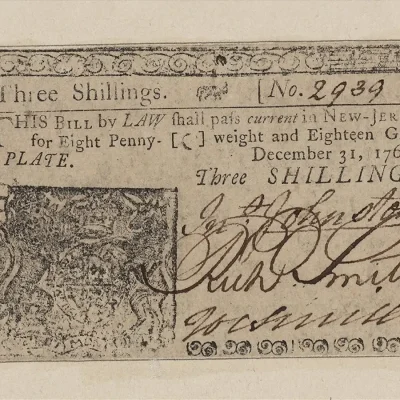 Three Shillings. [No. 2939
THIS BILL by LAW shall pass current in NEW-JER
for Eight Penny- [C] weight and Eighteen G
PLATE. December 31, 176
Three SHILLING
Jnº Johnsto
Rich Smi